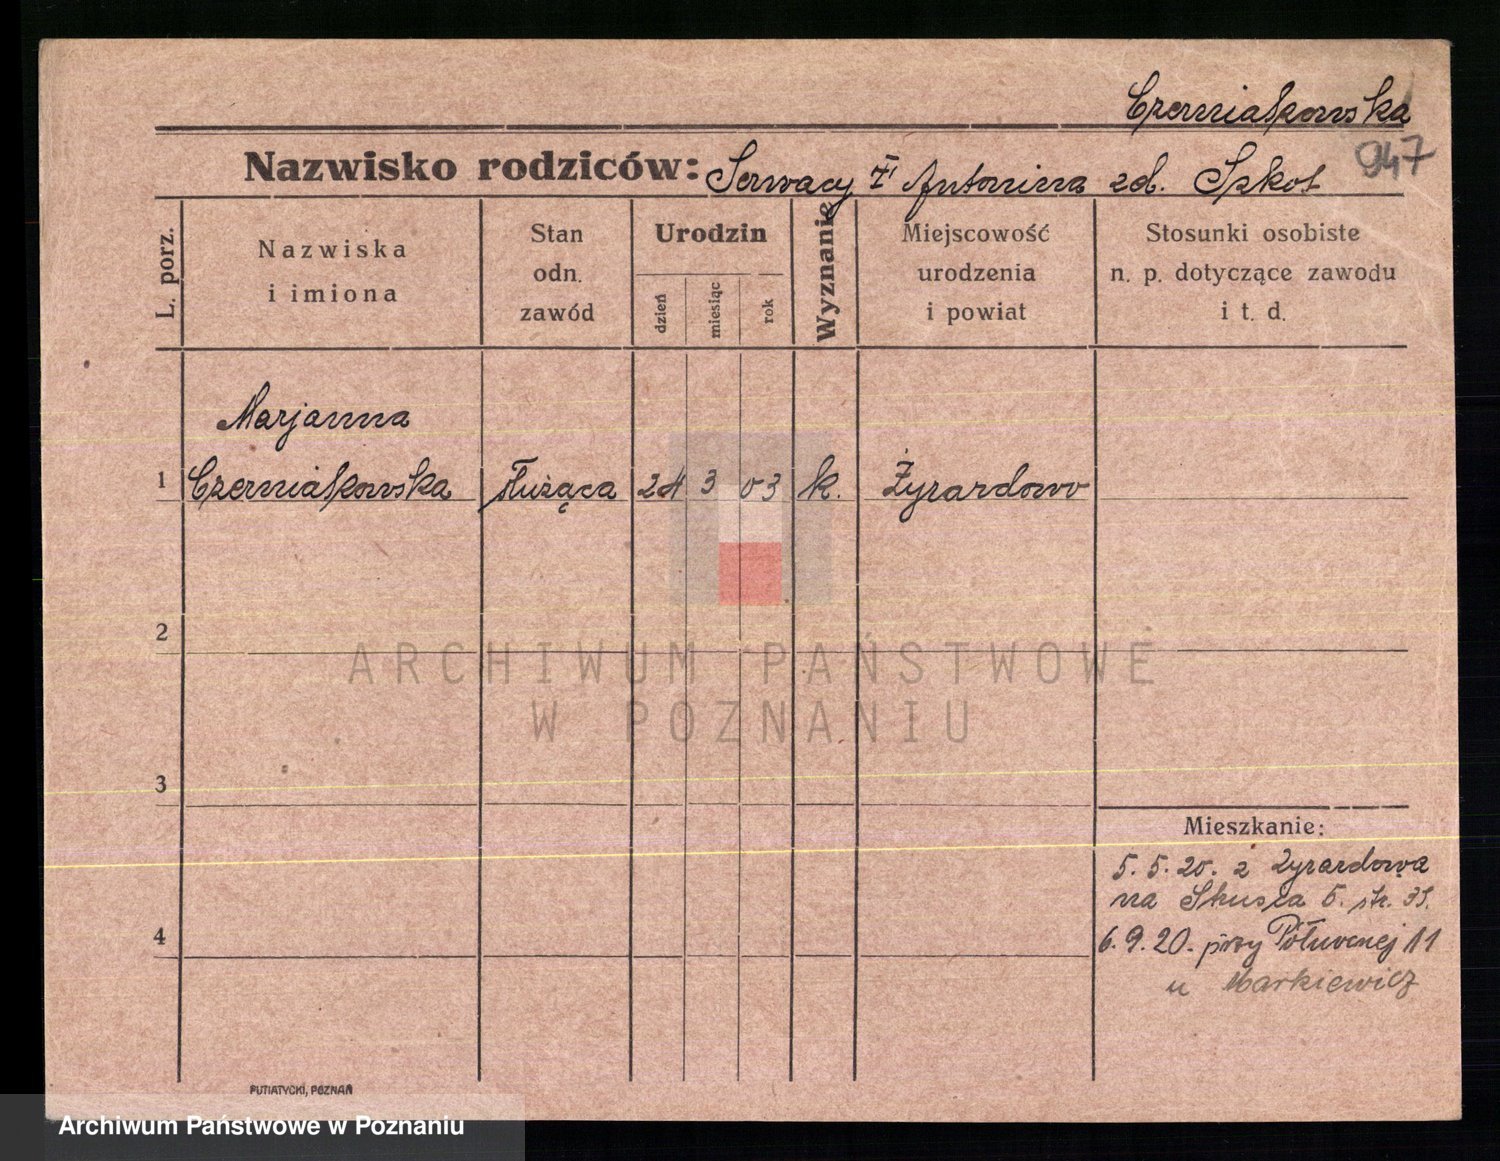 Czerniakowska
947
Nazwisko rodziców: Serwacy i Antonina zd. Szkot
L. porz.
Nazwiska
i imiona
Stan
odn.
zawód
Urodzin
dzień
miesiąc
rok
Wyznanie
Miejscowość
urodzenia
i powiat
Stosunki osobiste
n. p. dotyczące zawodu
i t. d.
Marjanna
1 Czerniakowska służąca 24 3 03 k. Żyrardowo
2
ARCHIWUM PAŃSTWOWE
W POZNANIU
3
Mieszkanie:
5. 5. 20. z Żyrardowa
na 5. str.
4
6. 9. 20. przy 11
u Markiewicz
PUTIATYCKI, POZNAŃ
Archiwum Państwowe w Poznaniu